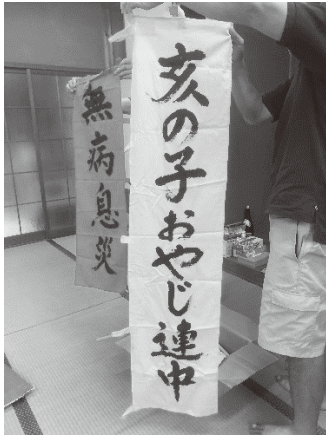 亥の子おやじ連中
無病息災